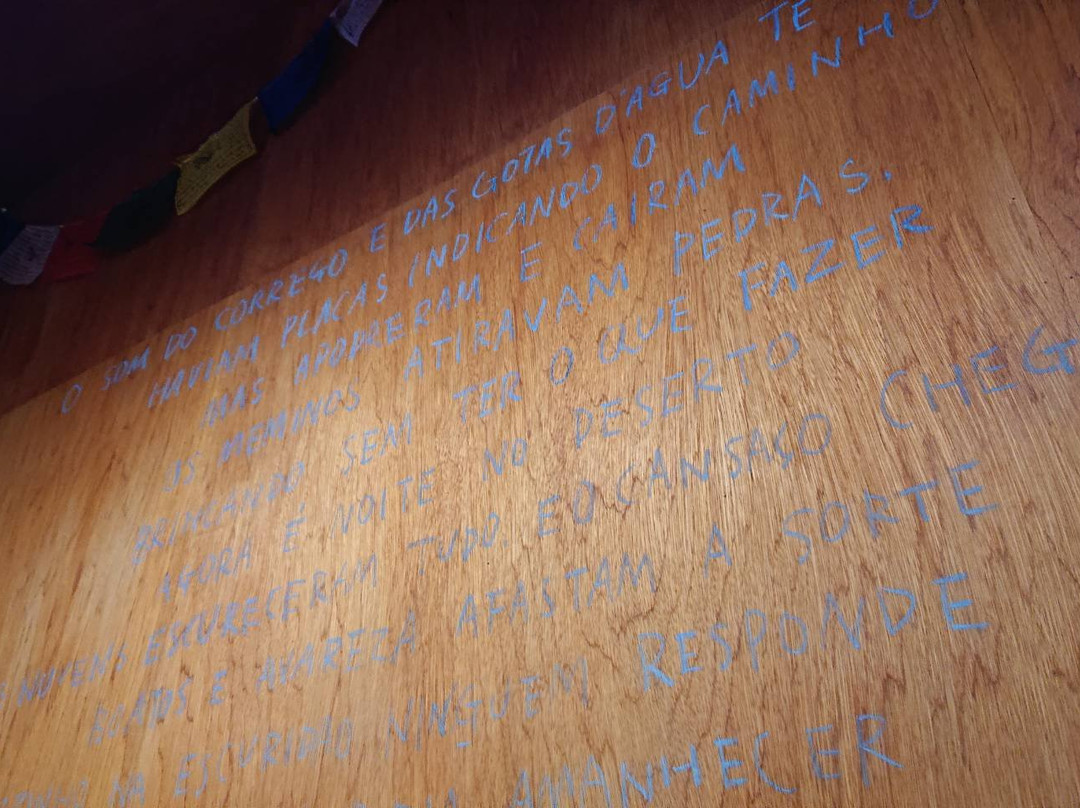 O SOM DO CORREGO E DAS GOTAS D'AGUA TE
HAVIAM PLACAS INDICANDO O CAMINHO
MAS APODRERAM E CAIRAM
OS MEMINOS ATIRAVAM PEDRAS,
BRINCANDO SEM TER O QUE FAZER
AGORA É NOITE NO DESERTO
NUVENS ESCURECERAM TUDO. E O CANSAÇO CHEG
BOATOS E AVAREZA AFASTAM A SORTE
NA ESCURIDÃO NINGUEM RESPONDE
AMANHECER